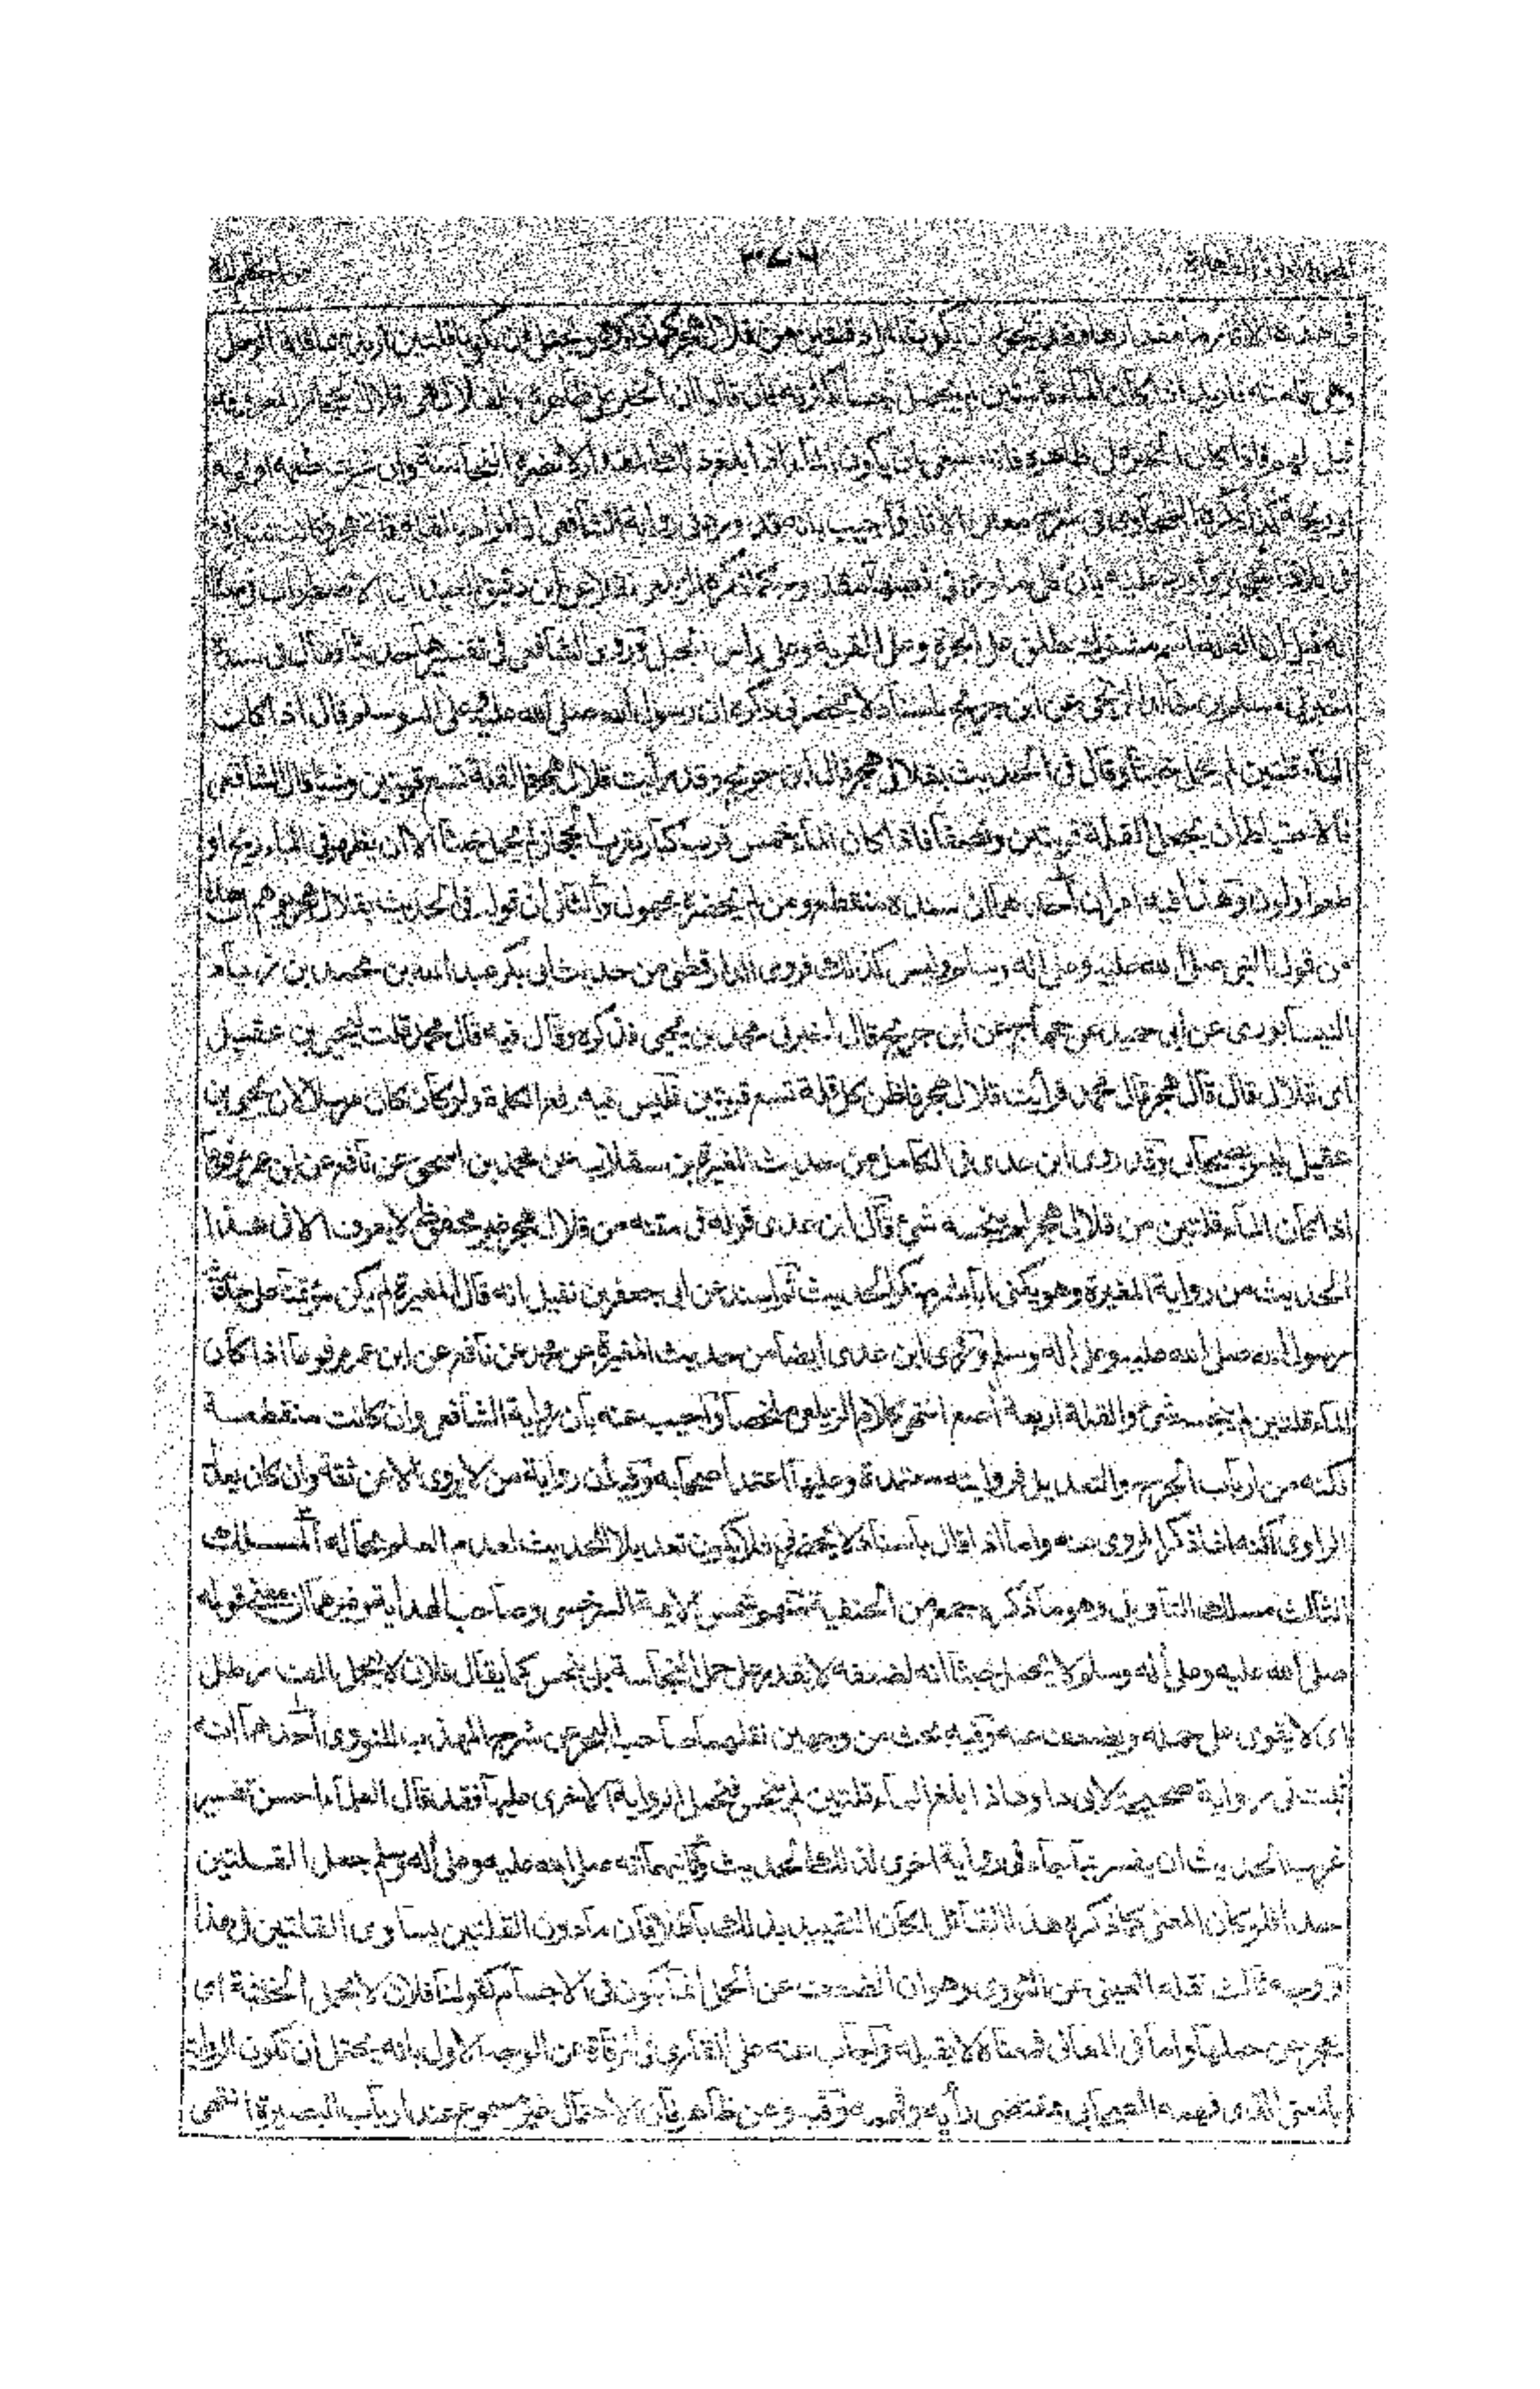 ٣٧٦
في هذه الآثار ما مقدارها فقد يجوز ان يكون مقدارها قلتين من قلال هجر كما ذكرتم ويحتمل ان يكونا قلتين اريد بهما قلة الرجل
وهي قامته فاريد اذا كان الماء قلتين لم يحمل نجسا لكثرته فان قالوا ان الخبر على ظاهره والقلال هي قلال الحجاز المعروفة
قيل لهم فاذا كان الخبر على ظاهره فانه ينبغي ان يكون الماء اذا بلغ ذلك لا تضره النجاسة وان غيرت طعمه او لونه
او ريحه كذا ذكره الطحاوي في شرح معاني الآثار واجيب بانه قد ورد في رواية الشافعي
به قيل ان القلة اسم مشترك يطلق على الجرة وعلى القربة وعلى رأس الجبل وروى الشافعي في تفسيرها حديثا فقال في مسنده
اخبرني مسلم بن خالد الزنجي عن ابن جريج باسناد لا يحضرني ذكره ان رسول الله صلى الله عليه وعلى آله وسلم قال اذا كان
الماء قلتين لم يحمل خبثا وقال في الحديث بقلال هجر قال ابن جريج وقد رأيت قلال هجر فالقلة تسع قربتين وشيئا قال الشافعي
فالاحتياط ان يجعل القلة قربتين ونصفا فاذا كان الماء خمس قرب كبار بقرب الحجاز لم يحمل خبثا الا ان يظهر في الماء ريح او
طعم او لون وهذا فيه امران احدهما ان سنده منقطع ومن لم يحضره مجهول والثاني ان قوله في الحديث بقلال هجر يوهم ان هذا
من قول النبي صلى الله عليه وعلى آله وسلم وليس كذلك فروى الدارقطني من حديث ابي بكر عبد الله بن محمد بن زياد
النيسابوري عن ابي حميد عن حجاج عن ابن جريج قال اخبرني محمد بن يحيى فذكره وقال فيه قال محمد قلت ليحيى بن عقيل
اي قلال قال قلال هجر قال محمد فرأيت قلال هجر فاظن كل قلة تسع قربتين فليس فيه رفع الكلمة ولو كان كان مرسلا لان يحيى بن
عقيل ليس بصحابي وقد روى ابن عدي في الكامل من حديث المغيرة بن سقلاب عن محمد بن اسحق عن نافع عن ابن عمر مرفوعا
اذا كان الماء قلتين من قلال هجر لم ينجسه شيء قال ابن عدي قوله في متنه من قلال هجر غير محفوظ لا يعرف الا في هذا
الحديث من رواية المغيرة وهو يكنى ابا بشر منكر الحديث ثم اسند عن ابي جعفر بن نفيل انه قال المغيرة لم يكن مؤتمنا على حديث
رسول الله صلى الله عليه وعلى آله وسلم وروى ابن عدي ايضا من حديث المغيرة عن محمد عن نافع عن ابن عمر مرفوعا اذا كان
الماء قلتين لم ينجسه شيء والقلة اربعة آصع انتهى كلام الزيلعي ملخصا واجيب عنه بان رواية الشافعي وان كانت منقطعة
لكنه من ارباب الجرح والتعديل فروايته معتمدة وعليها اعتمد اصحابه وفيه ان رواية من لا يروي الا عن ثقة وان كان تعديلا
الراوي لكنه اذا ذكر المروي عنه واما اذا قال باسناد لا يحضرني فلا يكون تعديلا للحديث لعدم العلم بحاله المسلك
الثالث مسلك التأويل وهو ما ذكره جمع من الحنفية منهم شمس الائمة السرخسي وصاحب الهداية وغيرهما ان معنى قوله
صلى الله عليه وعلى آله وسلم لا يحمل خبثا انه لضعفه لا يقدر على حمل النجاسة بل ينجس كما يقال فلان لا يحمل الف رطل
اي لا يقوى على حمله ويضعف عنه وفيه بحث من وجهين نقلهما صاحب البحر عن شرح المهذب للنووي احدهما انه
ثبت في رواية صحيحة لابي داود اذا بلغ الماء قلتين لم ينجس فتحمل الرواية الاخرى عليها فقد قال العلماء احسن تفسير
غريب الحديث ان يفسر بما جاء في رواية اخرى لذلك الحديث وثانيهما انه صلى الله عليه وعلى آله وسلم جعل القلتين
حدا فلو كان المعنى كما ذكره هذا القائل لكان التقييد بذلك باطلا فان ما دون القلتين يساوي القلتين في هذا
وفيه ثالث نقله العيني عن النووي وهو ان الضعف عن الحمل انما يكون في الاجسام كقولك فلان لا يحمل الخشبة اي
يعجز عن حملها واما في المعاني فمعناه لا يقبله واجاب عنه علي القاري في المرقاة عن الوجه الاول بانه يحتمل ان تكون الرواية
بالمعنى الذي فهمه الصحابي بمقتضى رأيه وفهمه وفيه وعن ظاهر بان الاحتمال غير مسموع عند ارباب البصيرة انتهى